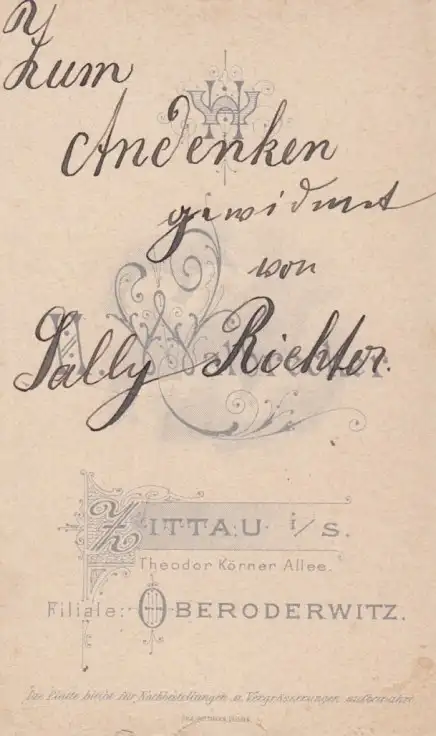 Zum
Andenken
gewidmet
von
Sally Richter.
ZITTAU i/S.
Theodor Körner Allee.
Filiale: OBERODERWITZ.
Die Platte bleibt für Nachbestellungen u. Vergrösserungen aufbewahrt